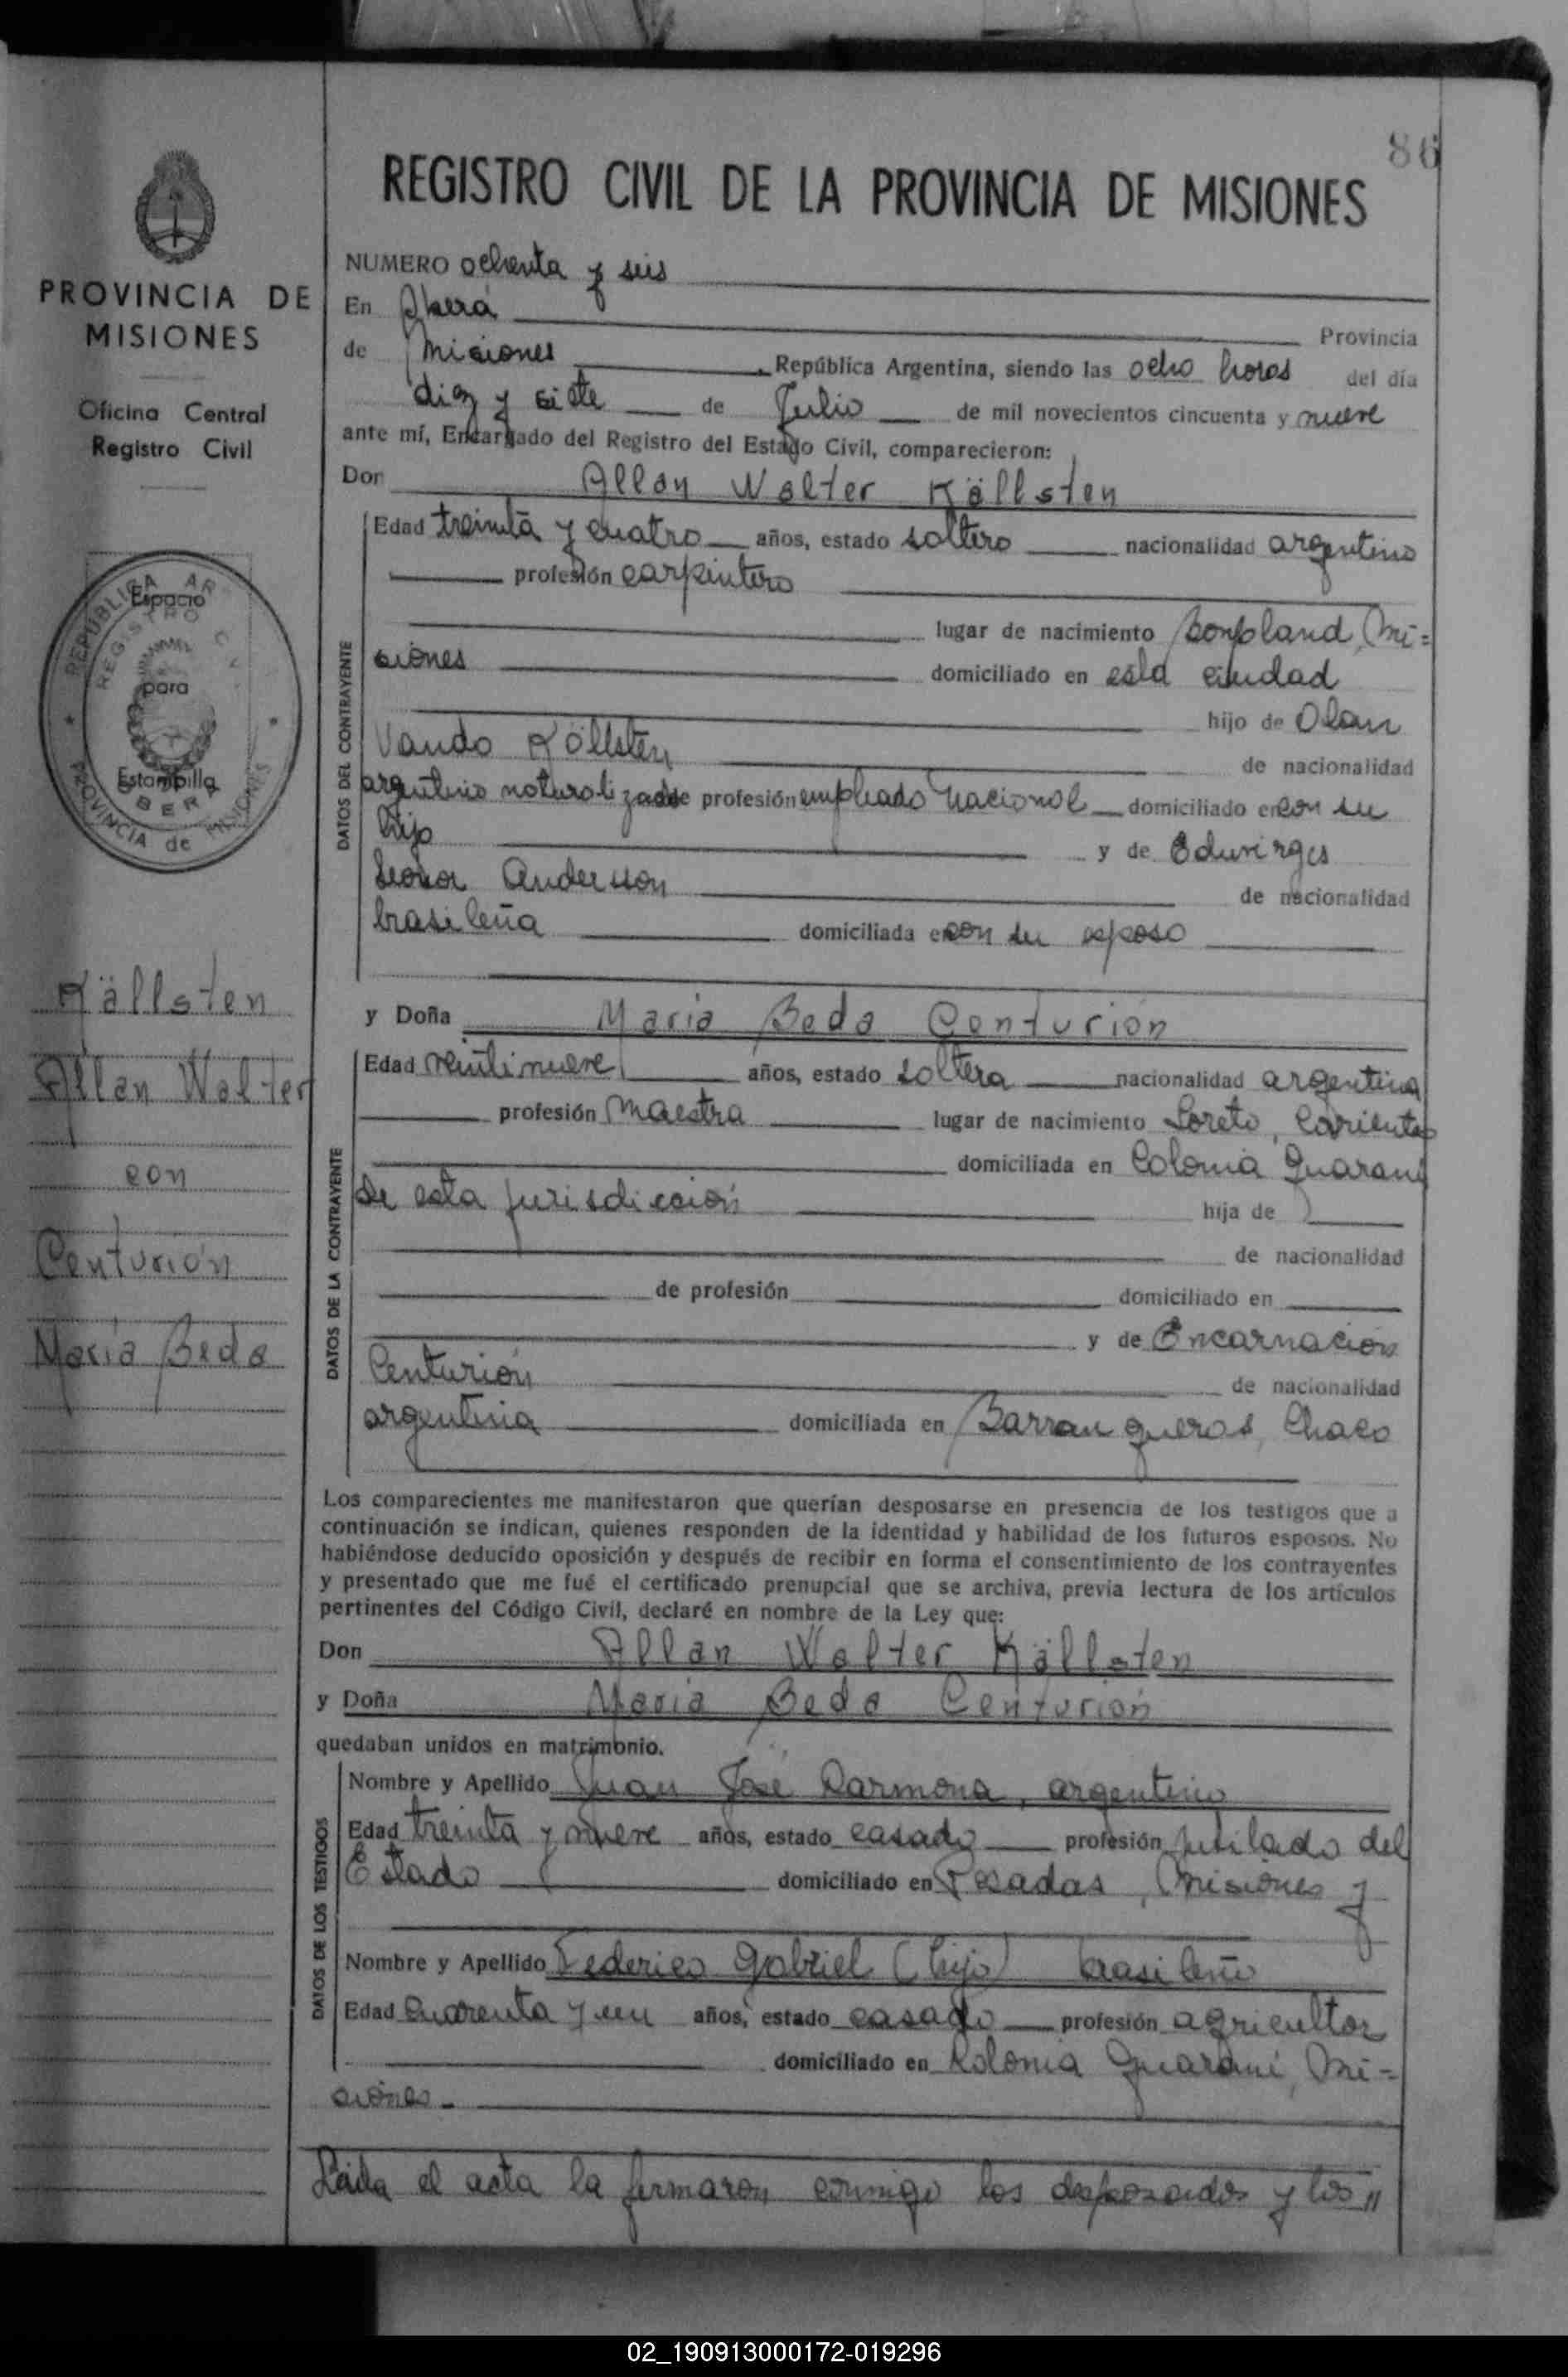 86
REGISTRO CIVIL DE LA PROVINCIA DE MISIONES
PROVINCIA DE
MISIONES
Oficina Central
Registro Civil
REPUBLICA AR
REGISTRO CIVIL
Espacio
para
Estampilla
OBERA
PROVINCIA de MISIONES
Källsten
Allan Walter
con
Centurión
María Beda
NUMERO ochenta y seis
En Oberá Provincia
de Misiones, República Argentina, siendo las ocho horas del día
diez y siete de Julio de mil novecientos cincuenta y nueve
ante mí, Encargado del Registro del Estado Civil, comparecieron:
Don Allan Walter Källsten
DATOS DEL CONTRAYENTE
Edad treinta y cuatro años, estado soltero nacionalidad argentino
profesión carpintero
lugar de nacimiento Bonpland, Mi=
siones domiciliado en esta ciudad
hijo de Olan
Vando Källsten de nacionalidad
argentino naturalizado de profesión empleado nacional domiciliado en con su
hijo y de Eduvirges
Leonor Anderson de nacionalidad
brasileña domiciliada en con su esposo
y Doña María Beda Centurión
DATOS DE LA CONTRAYENTE
Edad veintinueve años, estado soltera nacionalidad argentina
profesión maestra lugar de nacimiento Loreto, Corrientes
domiciliada en Colonia Guaraní
de esta jurisdicción hija de
de nacionalidad
de profesión domiciliado en
y de Encarnación
Centurión de nacionalidad
argentina domiciliada en Barranqueras, Chaco
Los comparecientes me manifestaron que querían desposarse en presencia de los testigos que a
continuación se indican, quienes responden de la identidad y habilidad de los futuros esposos. No
habiéndose deducido oposición y después de recibir en forma el consentimiento de los contrayentes
y presentado que me fué el certificado prenupcial que se archiva, previa lectura de los artículos
pertinentes del Código Civil, declaré en nombre de la Ley que:
Don Allan Walter Källsten
y Doña María Beda Centurión
quedaban unidos en matrimonio.
DATOS DE LOS TESTIGOS
Nombre y Apellido Juan José Carmona, argentino
Edad treinta y nueve años, estado casado profesión jubilado del
Estado domiciliado en Posadas, Misiones y
Nombre y Apellido Federico Gabriel (hijo) brasileño
Edad cuarenta y un años, estado casado profesión agricultor
domiciliado en Colonia Guaraní, Mi=
siones.
Leída el acta la firmaron conmigo los desposados y los "
02_190913000172-019296